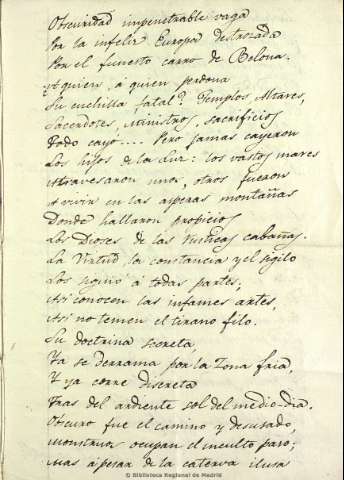 Obscuridad impenetrable vaga
Por la infeliz Europa destrozada
Por el funesto carro de Belona.
¿A quien, a quien perdona
Su cuchilla fatal? Templos Altares,
Sacerdotes, Ministros, sacrificios
Todo cayo.... Pero jamas cayeron
Los hijos de la Luz: los vastos mares
Atravesaron unos, otros fueron
A vivir en las asperas montañas
Donde hallaron propicios
Los Dioses de las rusticas cabañas.
La Virtud la constancia y el sigilo
Los siguió á todas partes,
Asi conocen las infames artes,
Asi no temen el tirano filo.
Su doctrina secreta
Ya se derrama por la Zona fria,
Y ya corre discreta
Tras del ardiente sol del medio-dia.
Obscuro fue el camino y desusado,
Monstruos ocupan el inculto paso;
Mas apesar de la caterva ilusa
© Biblioteca Regional de Madrid